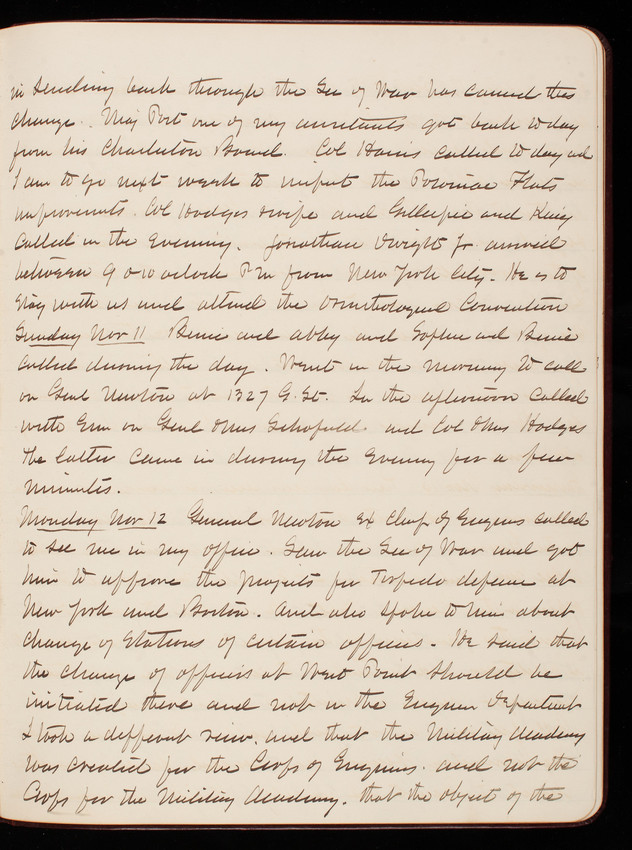 in sending back through the Sec of War has caused this
change. Maj Post one of my assistants got back today
from his Charleston Board. Col Hains called today and
I am to go next week to inspect the Potomac Flats
improvements. Col Hodges & wife and Gillespie and King
called in the Evening. Jonathan Dwight Jr arrived
between 9 & 10 oclock P m from New York City. He is to
stay with us and attend the Ornithological Convention
Sunday Nov 11 Bessie and Abby and Sophie and Bernie
called during the day. Went in the morning to call
on Genl Newton at 1327 G. St. In the afternoon called
with Em on Genl & Mrs Schofield and Col & Mrs Hodges
The latter came in during the Evening for a few
minutes.
Monday Nov 12 General Newton Ex Chief of Engrs called
to see me in my office. Saw the Sec of War and got
him to approve the projects for Torpedo defense at
New York and Boston. And also spoke to him about
change of Stations of certain officers. He said that
the change of officers at West Point should be
initiated there and not in the Engineer Department
I took a different view, and that the Military Academy
was created for the Corps of Engineers and not the
Corps for the Military Academy. that the object of the